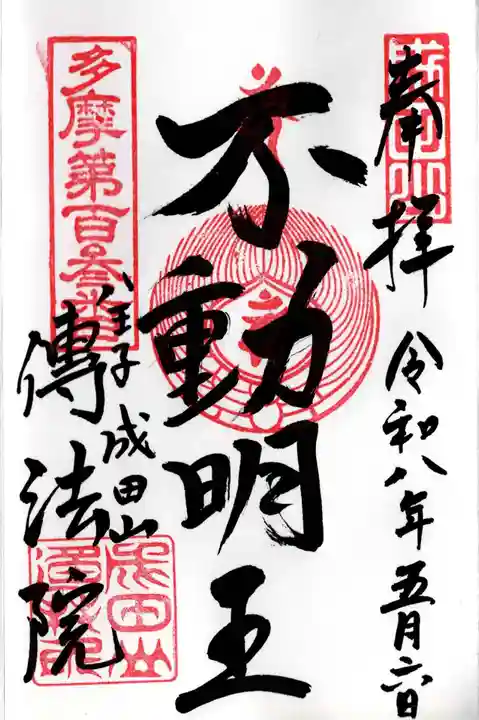 奉拝
令和八年五月六日
不動明王
多摩第百参番
八王子
成田山
傳法院
成田山